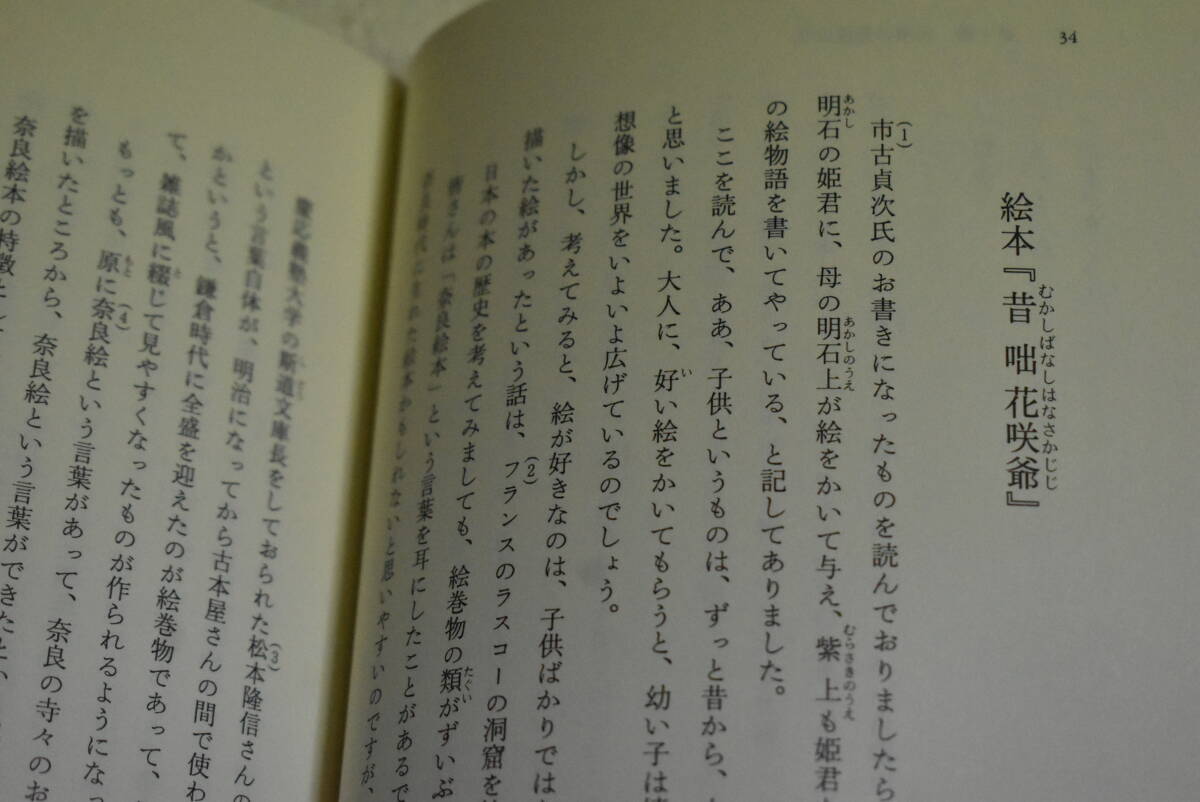 34
絵本『昔咄花咲爺』
むかしばなしはなさかじじ
市古貞次氏のお書きになったものを読んでおりましたら
(1)
明石の姫君に、母の明石上が絵をかいて与え、紫上も姫君
あかし
あかしのうえ
むらさきのうえ
の絵物語を書いてやっている、と記してありました。
ここを読んで、ああ、子供というものは、ずっと昔から、
と思いました。大人に、好い絵をかいてもらうと、幼い子は
い
想像の世界をいよいよ広げているのでしょう。
しかし、考えてみると、絵が好きなのは、子供ばかりでは
描いた絵があったという話は、フランスのラスコーの洞窟を
(2)
日本の本の歴史を考えてみましても、絵巻物の類がずいぶ
たぐい
皆さんは「奈良絵本」という言葉を耳にしたことがあるで
奈良時代に作られた絵本かもしれないと思いやすいのですが、
慶応義塾大学の斯道文庫長をしておられた松本隆信さんの
(3)
という言葉自体が、明治になってから古本屋さんの間で使わ
かというと、鎌倉時代に全盛を迎えたのが絵巻物であって、
て、雑誌風に綴じて見やすくなったものが作られるようにな
と
もっとも、原に奈良絵という言葉があって、奈良の寺々のお
もと
(4)
を描いたところから、奈良絵という言葉ができたと、
奈良絵本の特徴とし